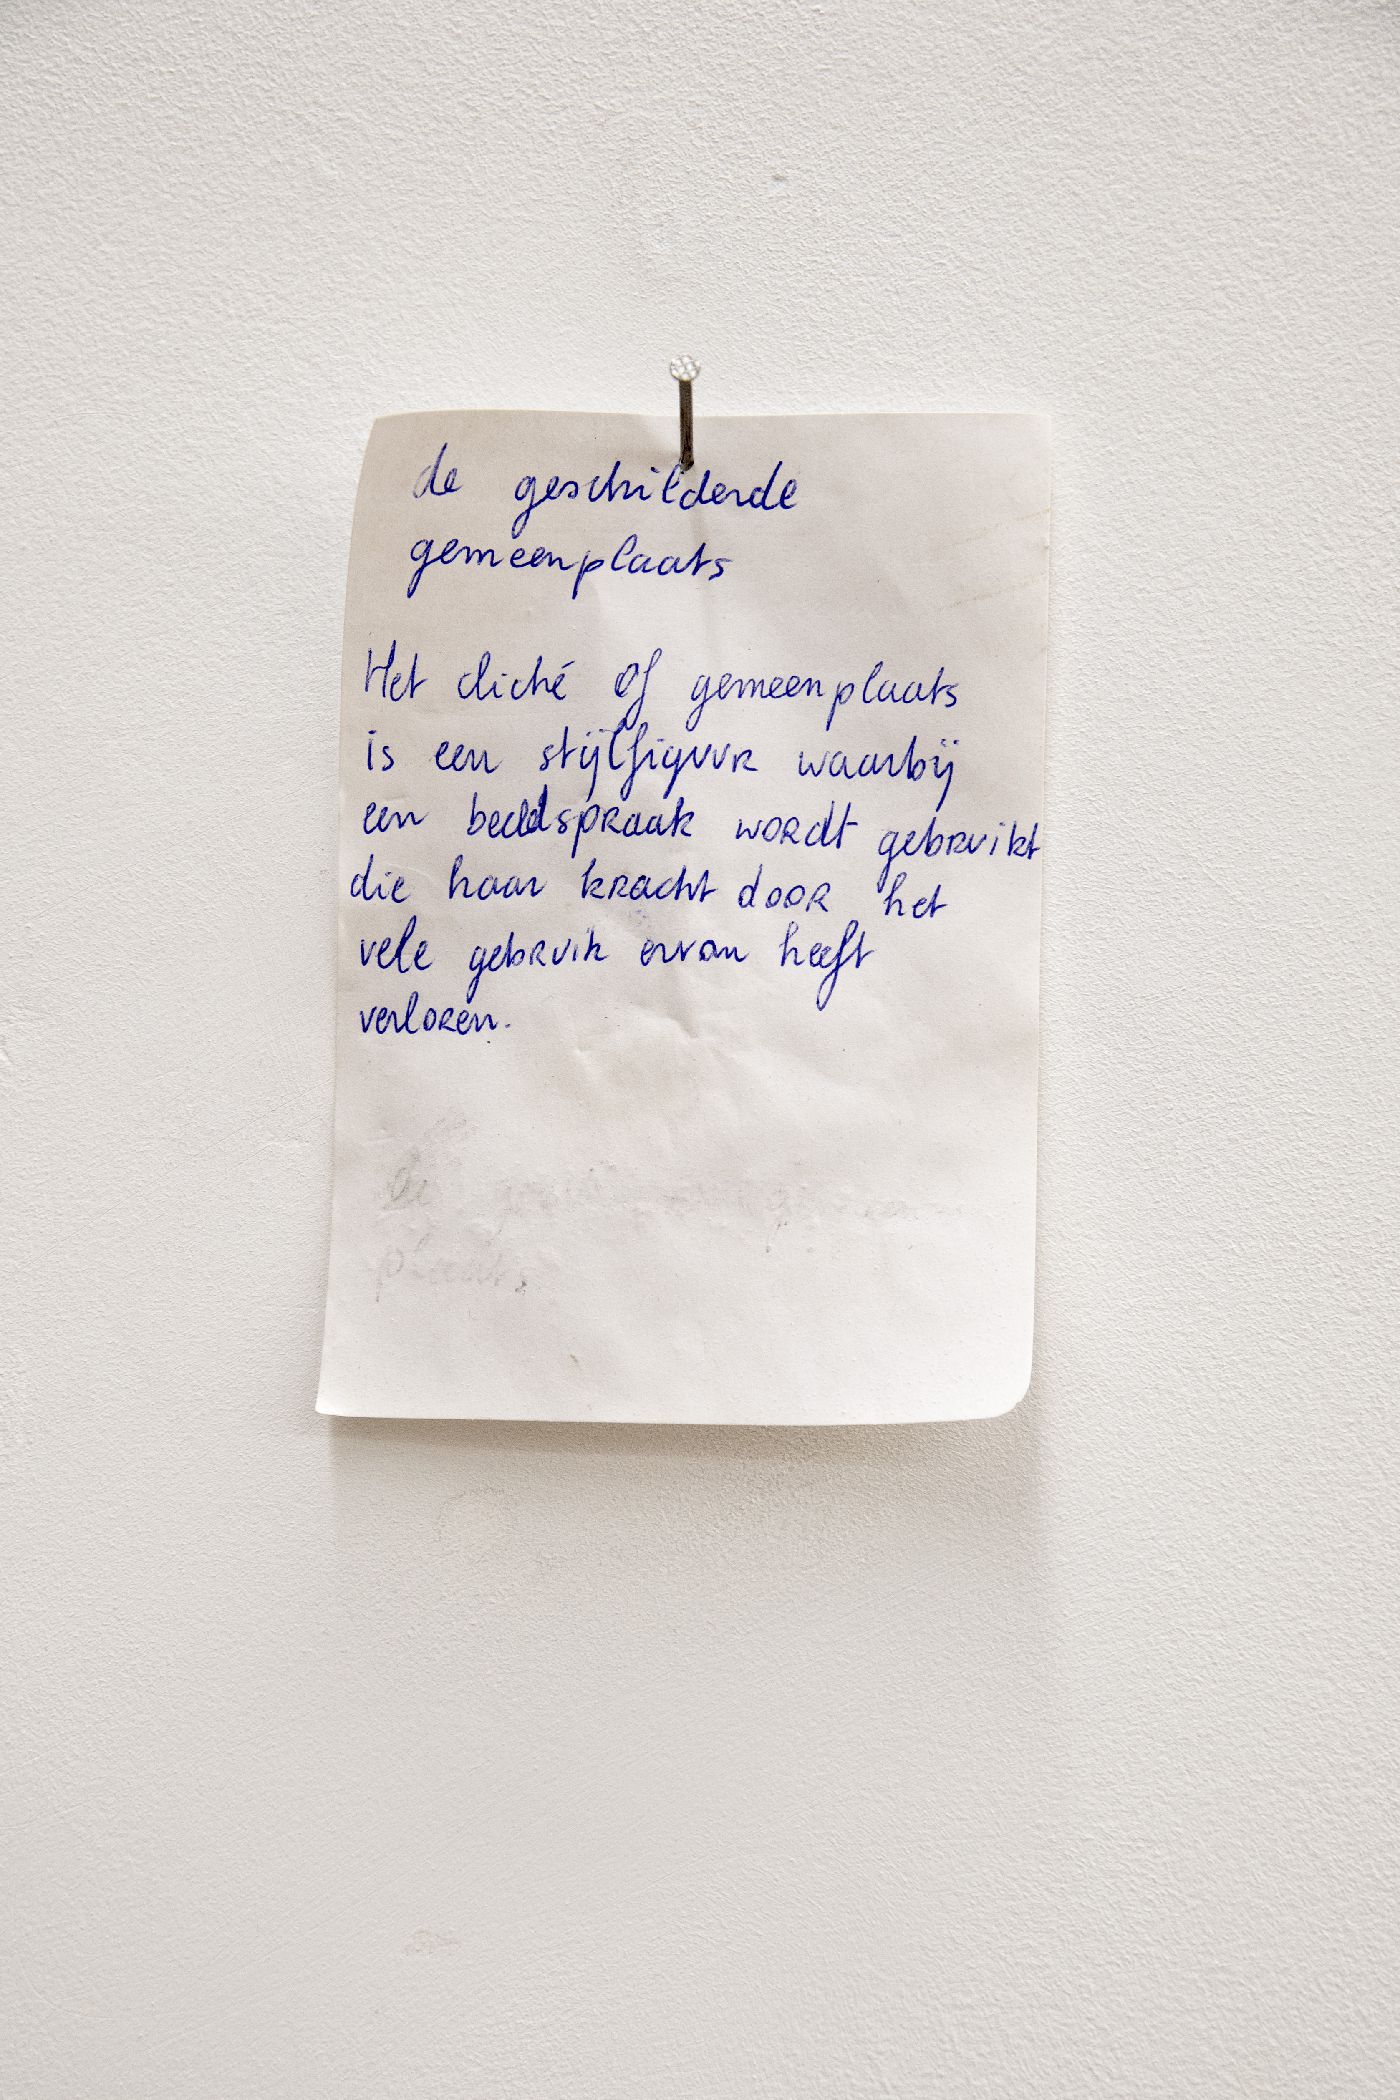 de geschilderde
gemeenplaats
Het cliché of gemeenplaats
is een stijlfiguur waarbij
een beeldspraak wordt gebruikt
die haar kracht door het
vele gebruik ervan heeft
verloren.